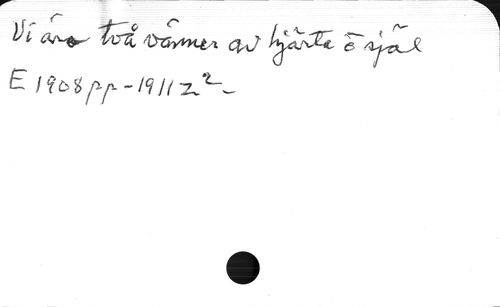 Vi äro två vänner av hjärta o själ
E 1908 pp - 1911 z² -